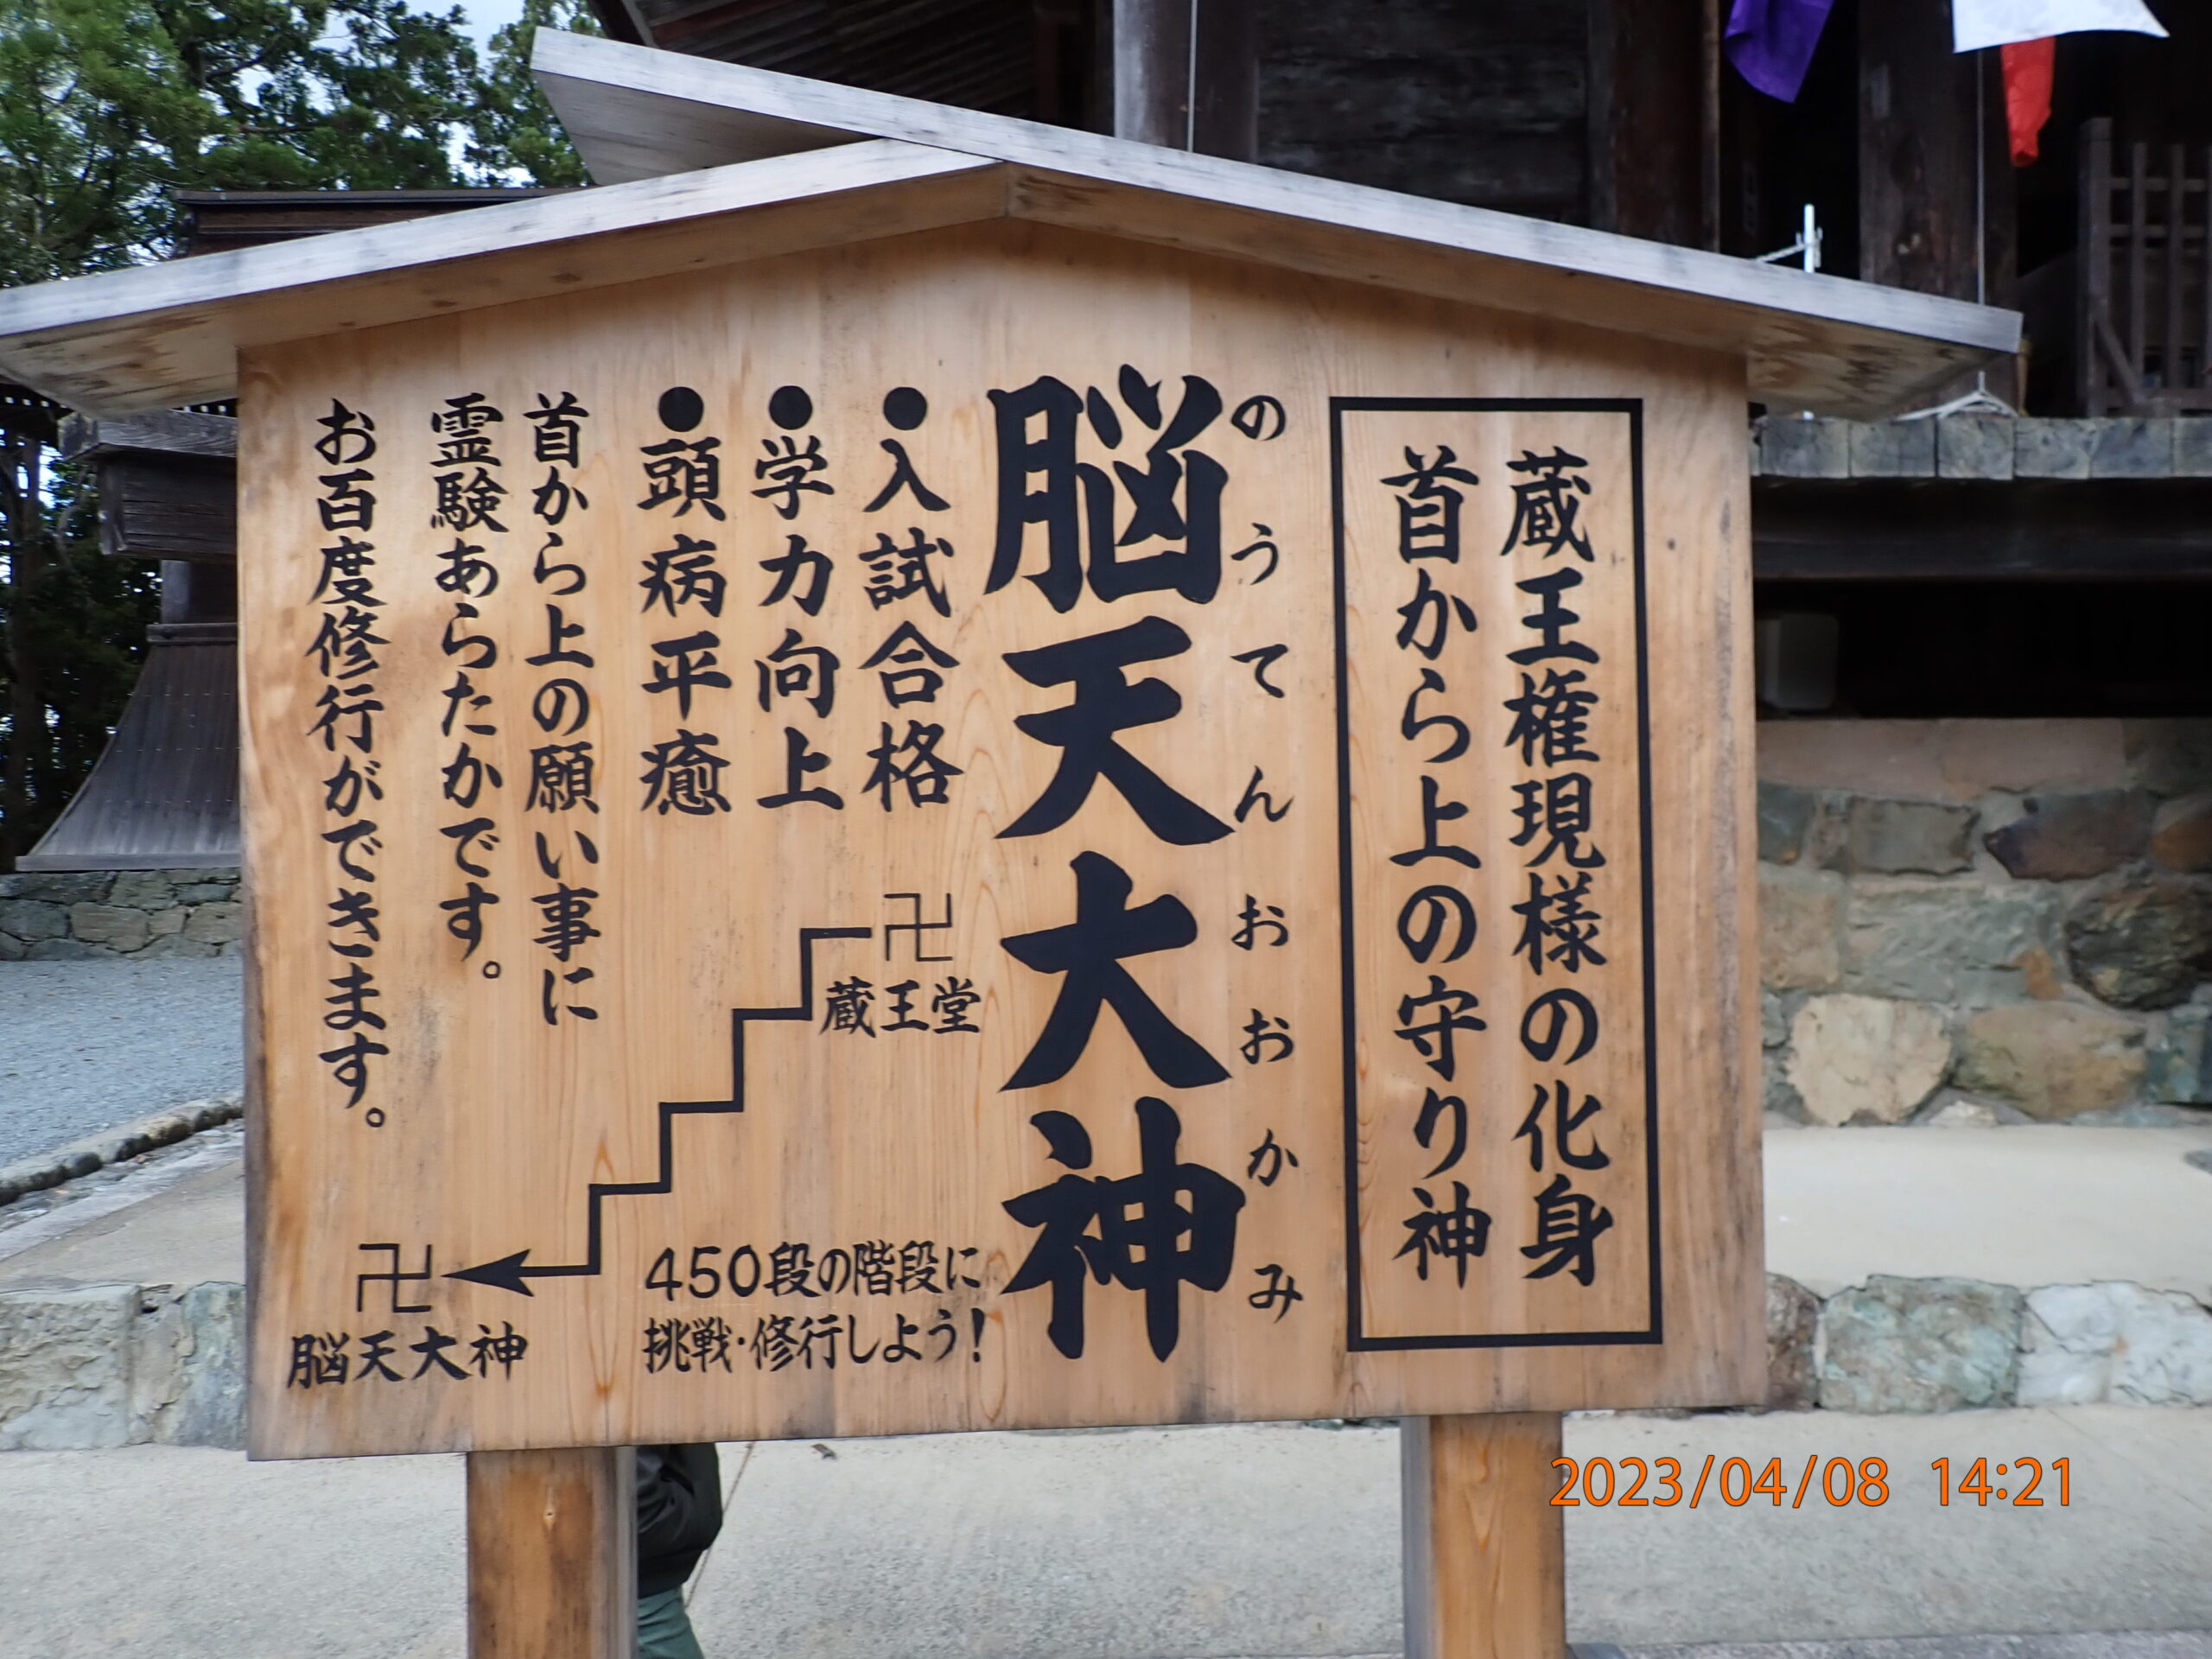 蔵王権現様の化身
首から上の守り神
のうてんおおかみ
脳天大神
●入試合格
●学力向上
●頭病平癒
首から上の願い事に
霊験あらたかです。
お百度修行ができます。
卍
蔵王堂
450段の階段に
挑戦・修行しよう!
卍
脳天大神
2023/04/08 14:21